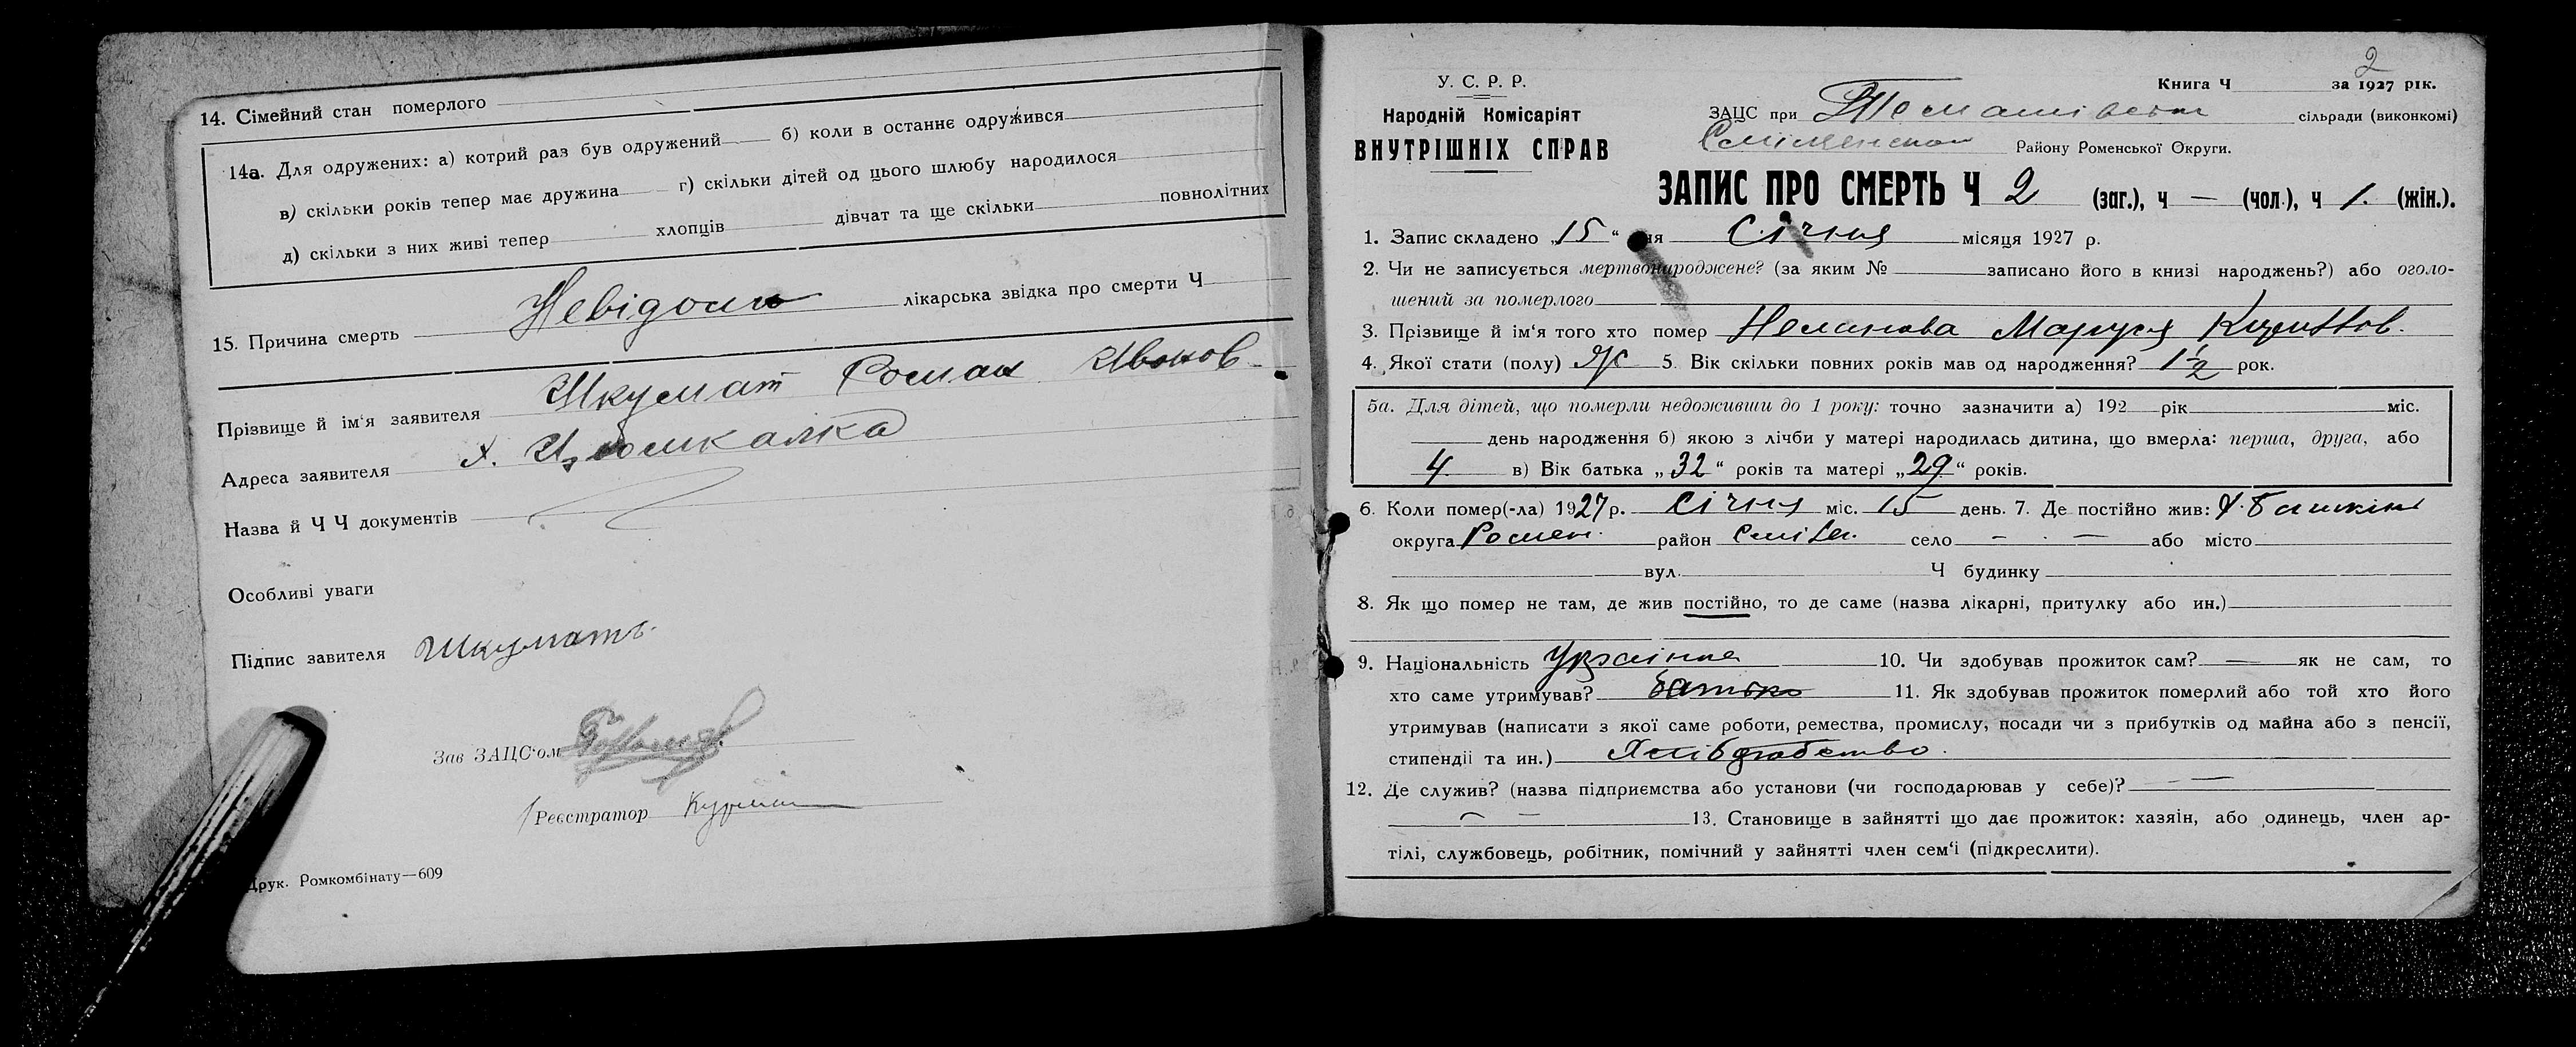 14. Сімейний стан померлого
14а. Для одружених: а) котрий раз був одружений б) коли в останнє одружився
в) скільки років тепер має дружина г) скільки дітей од цього шлюбу народилося
д) скільки з них живі тепер хлопців дівчат та ще скільки повнолітних
15. Причина смерть Невідомо лікарська звідка про смерти Ч
Прізвище й ім'я заявителя Шкумат Роман
Адреса заявителя х.
Назва й Ч Ч документів
Особливі уваги
Підпис завителя Шкуматъ
Зав ЗАЦС'ом
Реєстратор
Друк. Ромкомбінату—609
2
У. С. Р. Р.
Книга Ч за 1927 рік.
Народній Комісаріят
ВНУТРІШНІХ СПРАВ
ЗАЦС при сільради (виконкомі)
Району Роменської Округи.
ЗАПИС ПРО СМЕРТЬ Ч 2 (заг.), ч — (чол.), ч 1. (жін.).
1. Запис складено „15“ дня Січня місяця 1927 р.
2. Чи не записується мертвонароджене? (за яким № записано його в книзі народжень?) або оголо-
шений за померлого
3. Прізвище й ім'я того хто помер Маруся
4. Якої стати (полу) ж 5. Вік скільки повних років мав од народження? 1½ рок.
5а. Для дітей, що померли недоживши до 1 року: точно зазначити а) 192 рік міс.
день народження б) якою з лічби у матері народилась дитина, що вмерла: перша, друга, або
4 в) Вік батька „32“ років та матері „29“ років.
6. Коли помер(-ла) 1927 р. Січня міс. 15 день. 7. Де постійно жив: х.
округа Ромен. район село — — або місто
вул. Ч будинку
8. Як що помер не там, де жив постійно, то де саме (назва лікарні, притулку або ин.)
9. Національність Українка 10. Чи здобував прожиток сам? — як не сам, то
хто саме утримував? батько 11. Як здобував прожиток померлий або той хто його
утримував (написати з якої саме роботи, ремества, промислу, посади чи з прибутків од майна або з пенсії,
стипендії та ин.) Хліборобство.
12. Де служив? (назва підприємства або установи (чи господарював у себе)? — —
— — 13. Становище в зайнятті що дає прожиток: хазяін, або одинець, член ар-
тілі, службовець, робітник, помічний у зайнятті член сем'і (підкреслити).